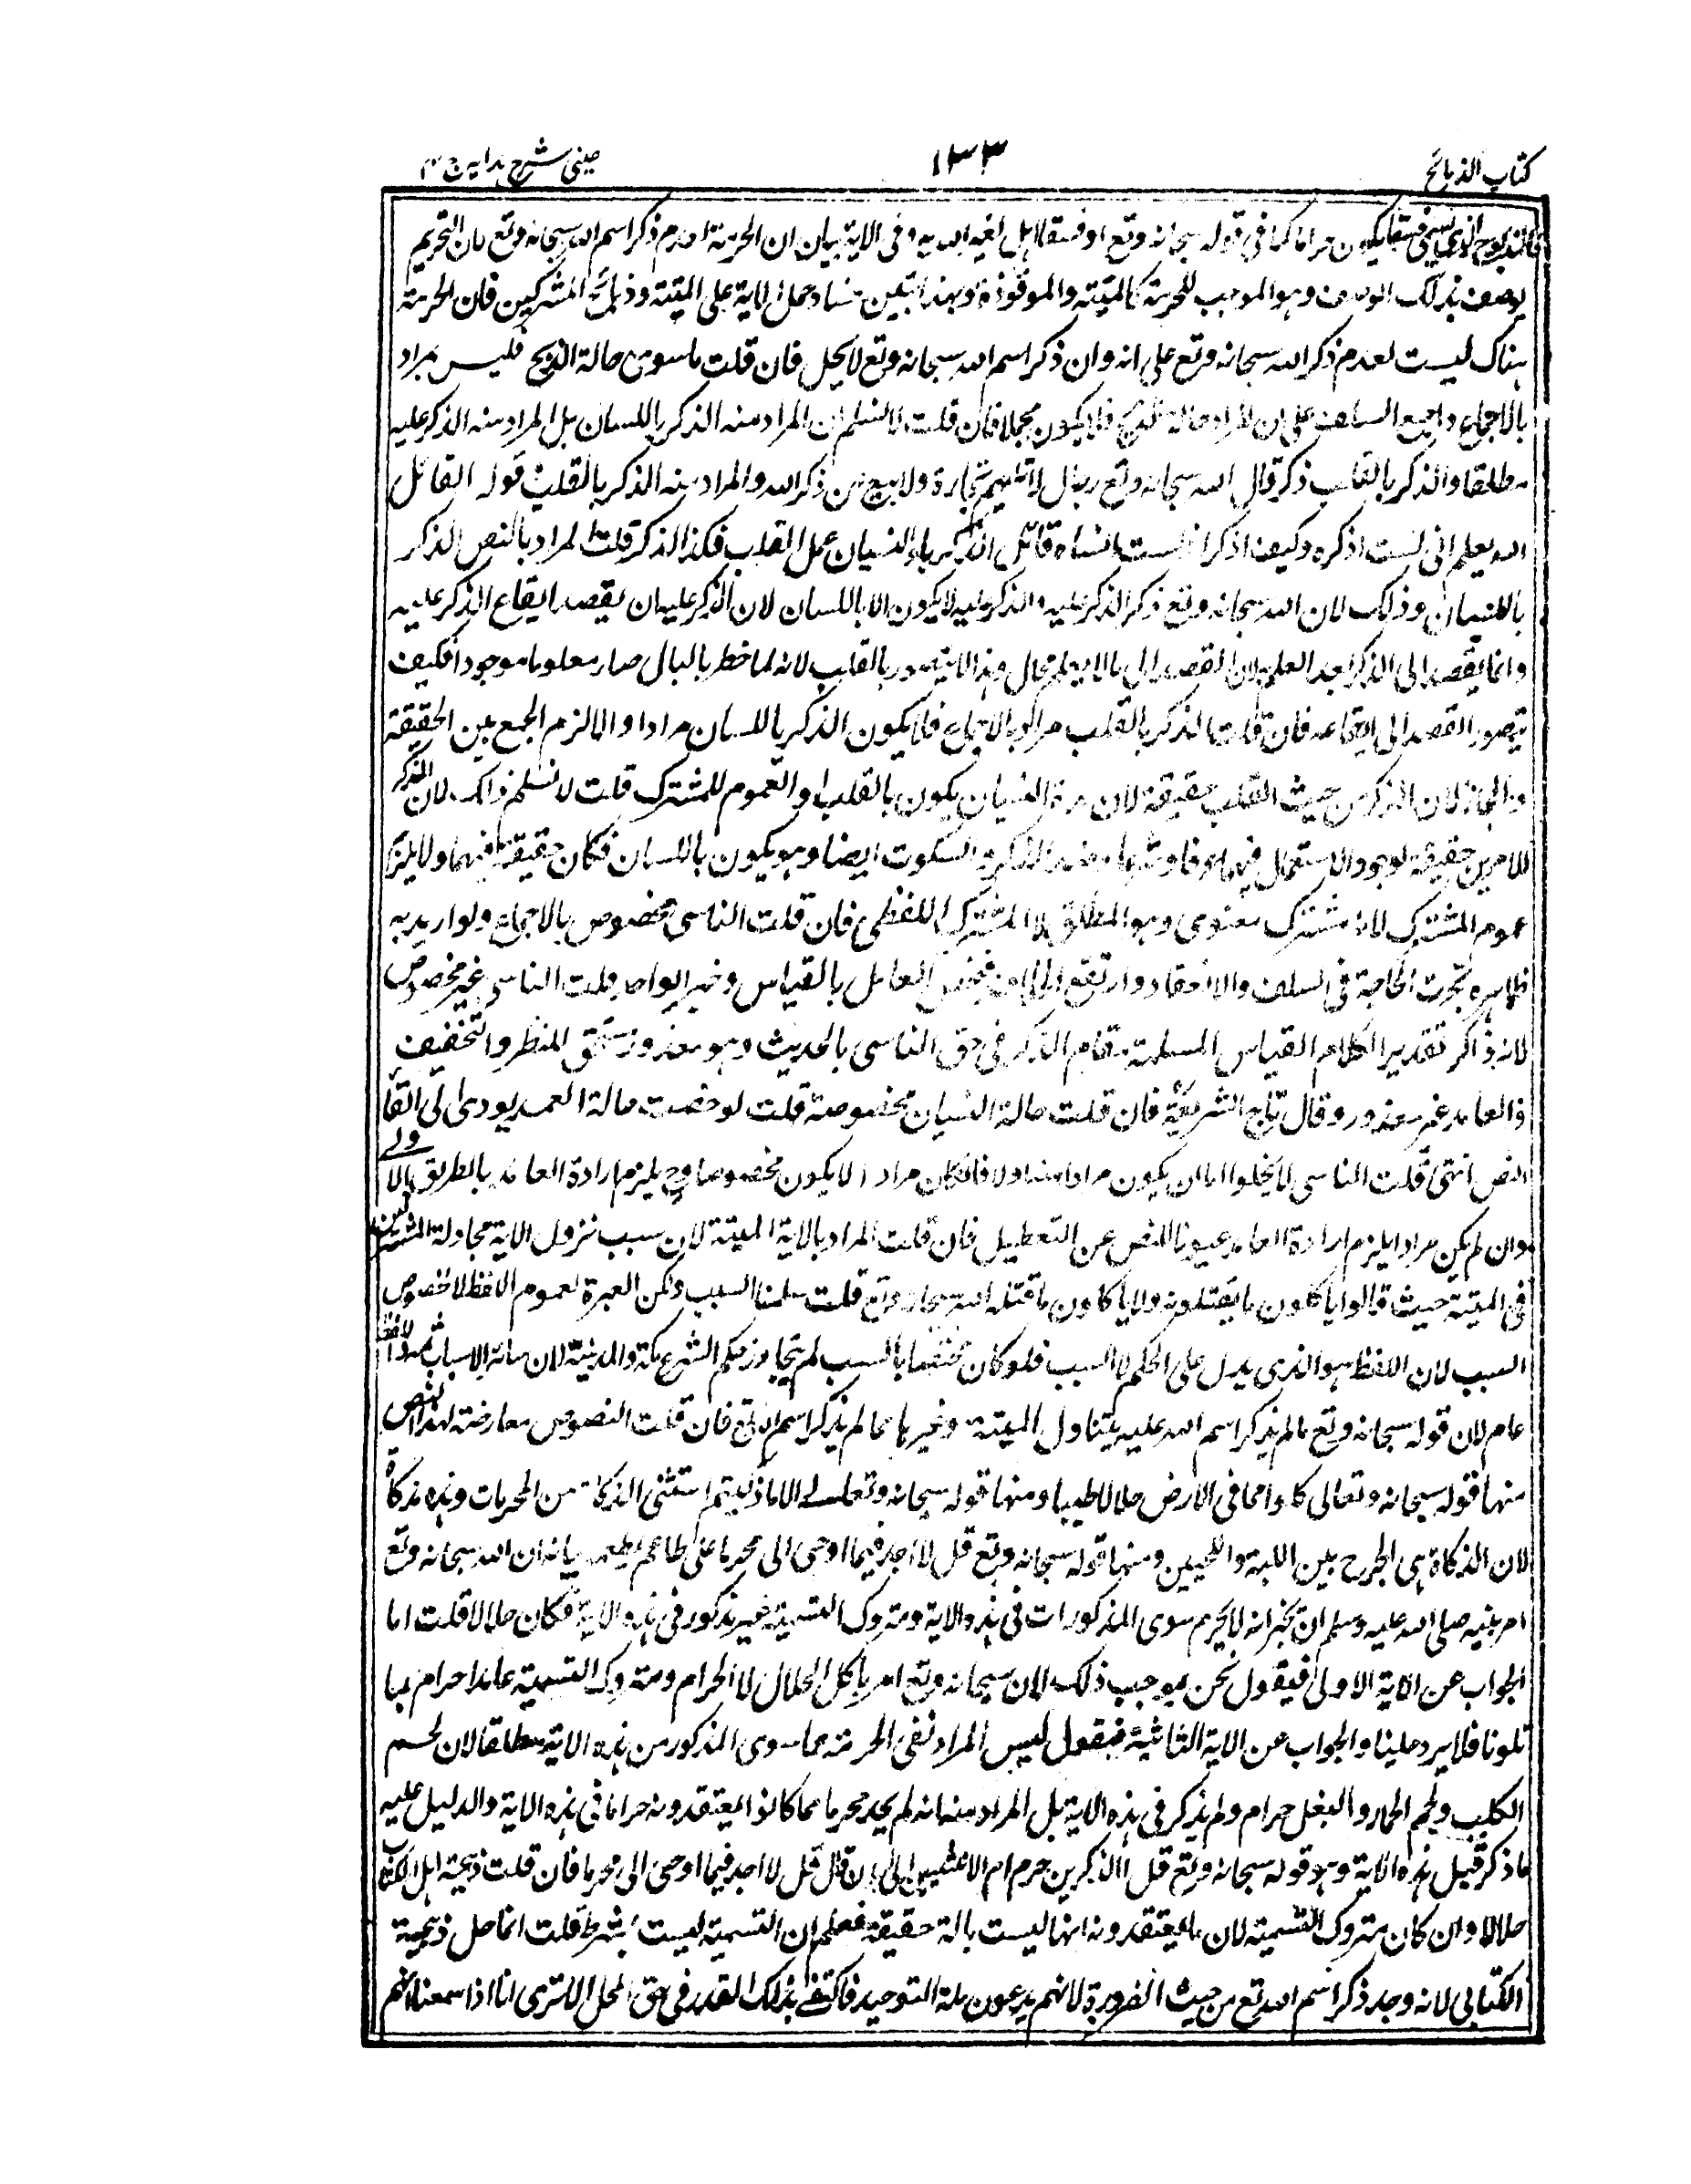 كتاب الذبائح
١٣٣
عينى شرح هدايه ج ٤
فالمذبوح الذى يسمى فسقا يكون حراما كما فى قوله سبحانه وتع او فسقا اهل لغير الله به وفى الاية بيان ان الحرمة لعدم ذكر اسم الله سبحانه وتع لان التحريم
يوصف بذلك الوصف وهو الموجب للحرمة كالميتة والموقوذة وبهذا تبين فساد حمل الاية على الميتة وذبائح المشركين فان الحرمة
هناك ليست لعدم ذكر الله سبحانه وتع على انه وان ذكر اسم الله سبحانه وتع لا يحل فان قلت ما سوى حالة الذبح فليس بمراد
بالاجماع واجمع السلف على ان المراد حالة الذبح فلا يكون مجملا فان قلت لا نسلم ان المراد منه الذكر باللسان بل المراد منه الذكر عليه
مطلقا والذكر بالقلب ذكر قال الله سبحانه وتع رجال لا تلهيهم تجارة ولا بيع عن ذكر الله والمراد منه الذكر بالقلب قوله القائل
الله يعلم انى لست اذكره وكيف اذكر اذ لست انساه قائل الذكر باء والنسيان عمل القلب فكذا الذكر قلت المراد بالنص الذكر
باللسان وذلك لان الله سبحانه وتع ذكر الذكر عليه والذكر عليه لا يكون الا باللسان لان الذكر عليه ان يقصد ايقاع الذكر عليه
وانما يقصد الى الذكر بعد العلم لان القصد الى ما لا يعلم محال وهذا لا يتصور بالقلب لانه لما خطر بالبال صار معلوما موجودا فكيف
يتصور القصد الى ايقاعه فان قلت الذكر بالقلب مراد بالاجماع فلا يكون الذكر باللسان مرادا والا لزم الجمع بين الحقيقة
والمجاز لان الذكر من حيث القلب حقيقة لان ضده النسيان يكون بالقلب او العموم للمشترك قلت لا نسلم ذلك لان الذكر
للامرين حقيقة لوجود الاستعمال فيهما عرفا وشرعا وضد الذكر السكوت ايضا وهو يكون باللسان فكان حقيقة فيهما ولا يلزم
عموم المشترك لانه مشترك معنوى وهو المطلق لا المشترك اللفظى فان قلت الناسى مخصوص بالاجماع ولو اريد به
ظاهره لجرت المحاجة فى السلف والانقياد وارتفع الخلاف فيخص العامل بالقياس وخبر الواحد قلت الناسى غير مخصوص
لانه ذاكر تقديرا لكلام القياس المسلمة مقام الذكر فى حق الناسى بالحديث وهو معذور يستحق النظر والتخفيف
والعامد غير معذور وقال تاج الشريعة فان قلت حالة النسيان مخصوصة قلت لو خصت حالة العمد يودى الى الغاء
النص انتهى قلت الناسى لا يخلوا اما ان يكون مرادا منه اولا فان كان مرادا لا يكون مخصوصا وح يلزم ارادة العامد بالطريق الاولے
وان لم يكن مرادا يلزم ارادة العامد صونا للنص عن التعطيل فان قلت المراد بالاية الميتة لان سبب نزول الاية مجادلة المشركين
فى الميتة حيث قالوا ياكلون ما يقتلونه ولا ياكلون ما قتله الله سبحانه وتع قلت سلمنا السبب ولكن العبرة لعموم اللفظ لا لخصوص
السبب لان اللفظ هو الذى يدل على الحكم لا السبب فلو كان مختصا بالسبب لم يتجاوز حكم الشرع مكة والمدينة لان سائر الاسباب ثمه واللفظ
عام لان قوله سبحانه وتع ما لم يذكر اسم الله عليه يتناول الميتة وغيرها مما لم يذكر اسم الله تع فان قلت النصوص معارضة لهذا النص
منها قوله سبحانه وتعالى كلوا مما فى الارض حلالا طيبا ومنها قوله سبحانه وتعالے الا ما ذكيتم استثنى الذكاة من المحرمات وهذه ذكاة
لان الذكاة هى الجرح بين اللبة واللحيين ومنها قوله سبحانه وتع قل لا اجد فيما اوحى الى محرما على طاعم يطعمه بيانه ان الله سبحانه وتع
امر نبيه صلى الله عليه وسلم ان يخبر انه لا يحرم سوى المذكورات فى هذه الاية ومتروك التسمية غير مذكور فى هذه الاية فكان حلالا قلت اما
الجواب عن الاية الاولى فيقول نحن بموجب ذلك لان سبحانه وتع امر باكل الحلال لا الحرام ومتروك التسمية عامدا حرام بما
تلونا فلا يرد علينا والجواب عن الاية الثانية فيقول ليس المراد نفى الحرمة عما سوى المذكور من هذه الاية مطلقا لان لحم
الكلب ولحم الحمار والبغل حرام ولم يذكر فى هذه الاية بل المراد منها انه لم يجد محرما مما كانوا يعتقدونه حراما فى هذه الاية والدليل عليه
ما ذكر قبيل هذه الاية وهو قوله سبحانه وتع قل االذكرين حرم ام الانثيين الى ان قال قل لا اجد فيما اوحى الى محرما فان قلت ذبيحة اهل الكتاب
حلالا وان كان متروك التسمية لان ما يعتقدونه انها ليست باله حقيقة فعلم ان التسمية ليست بشرط قلت انما حل ذبيحة
الكتابى لانه وجد ذكر اسم الله تع من حيث الضرورة لانهم يدعون ملة التوحيد فاكتفى بذلك القدر فى حق الحل الا ترى انا اذا سمعنا انهم